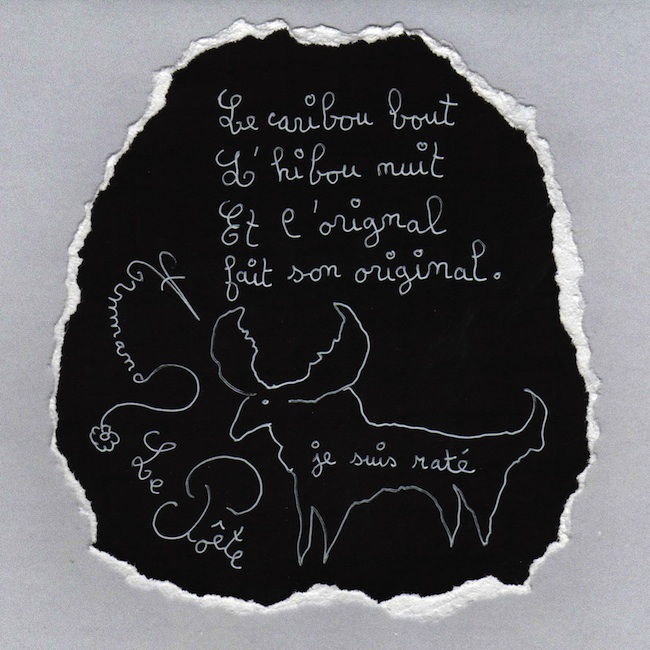 Le caribou bout
L'hibou nuit
Et l'orignal
fait son original.
je suis raté
Le
Poête